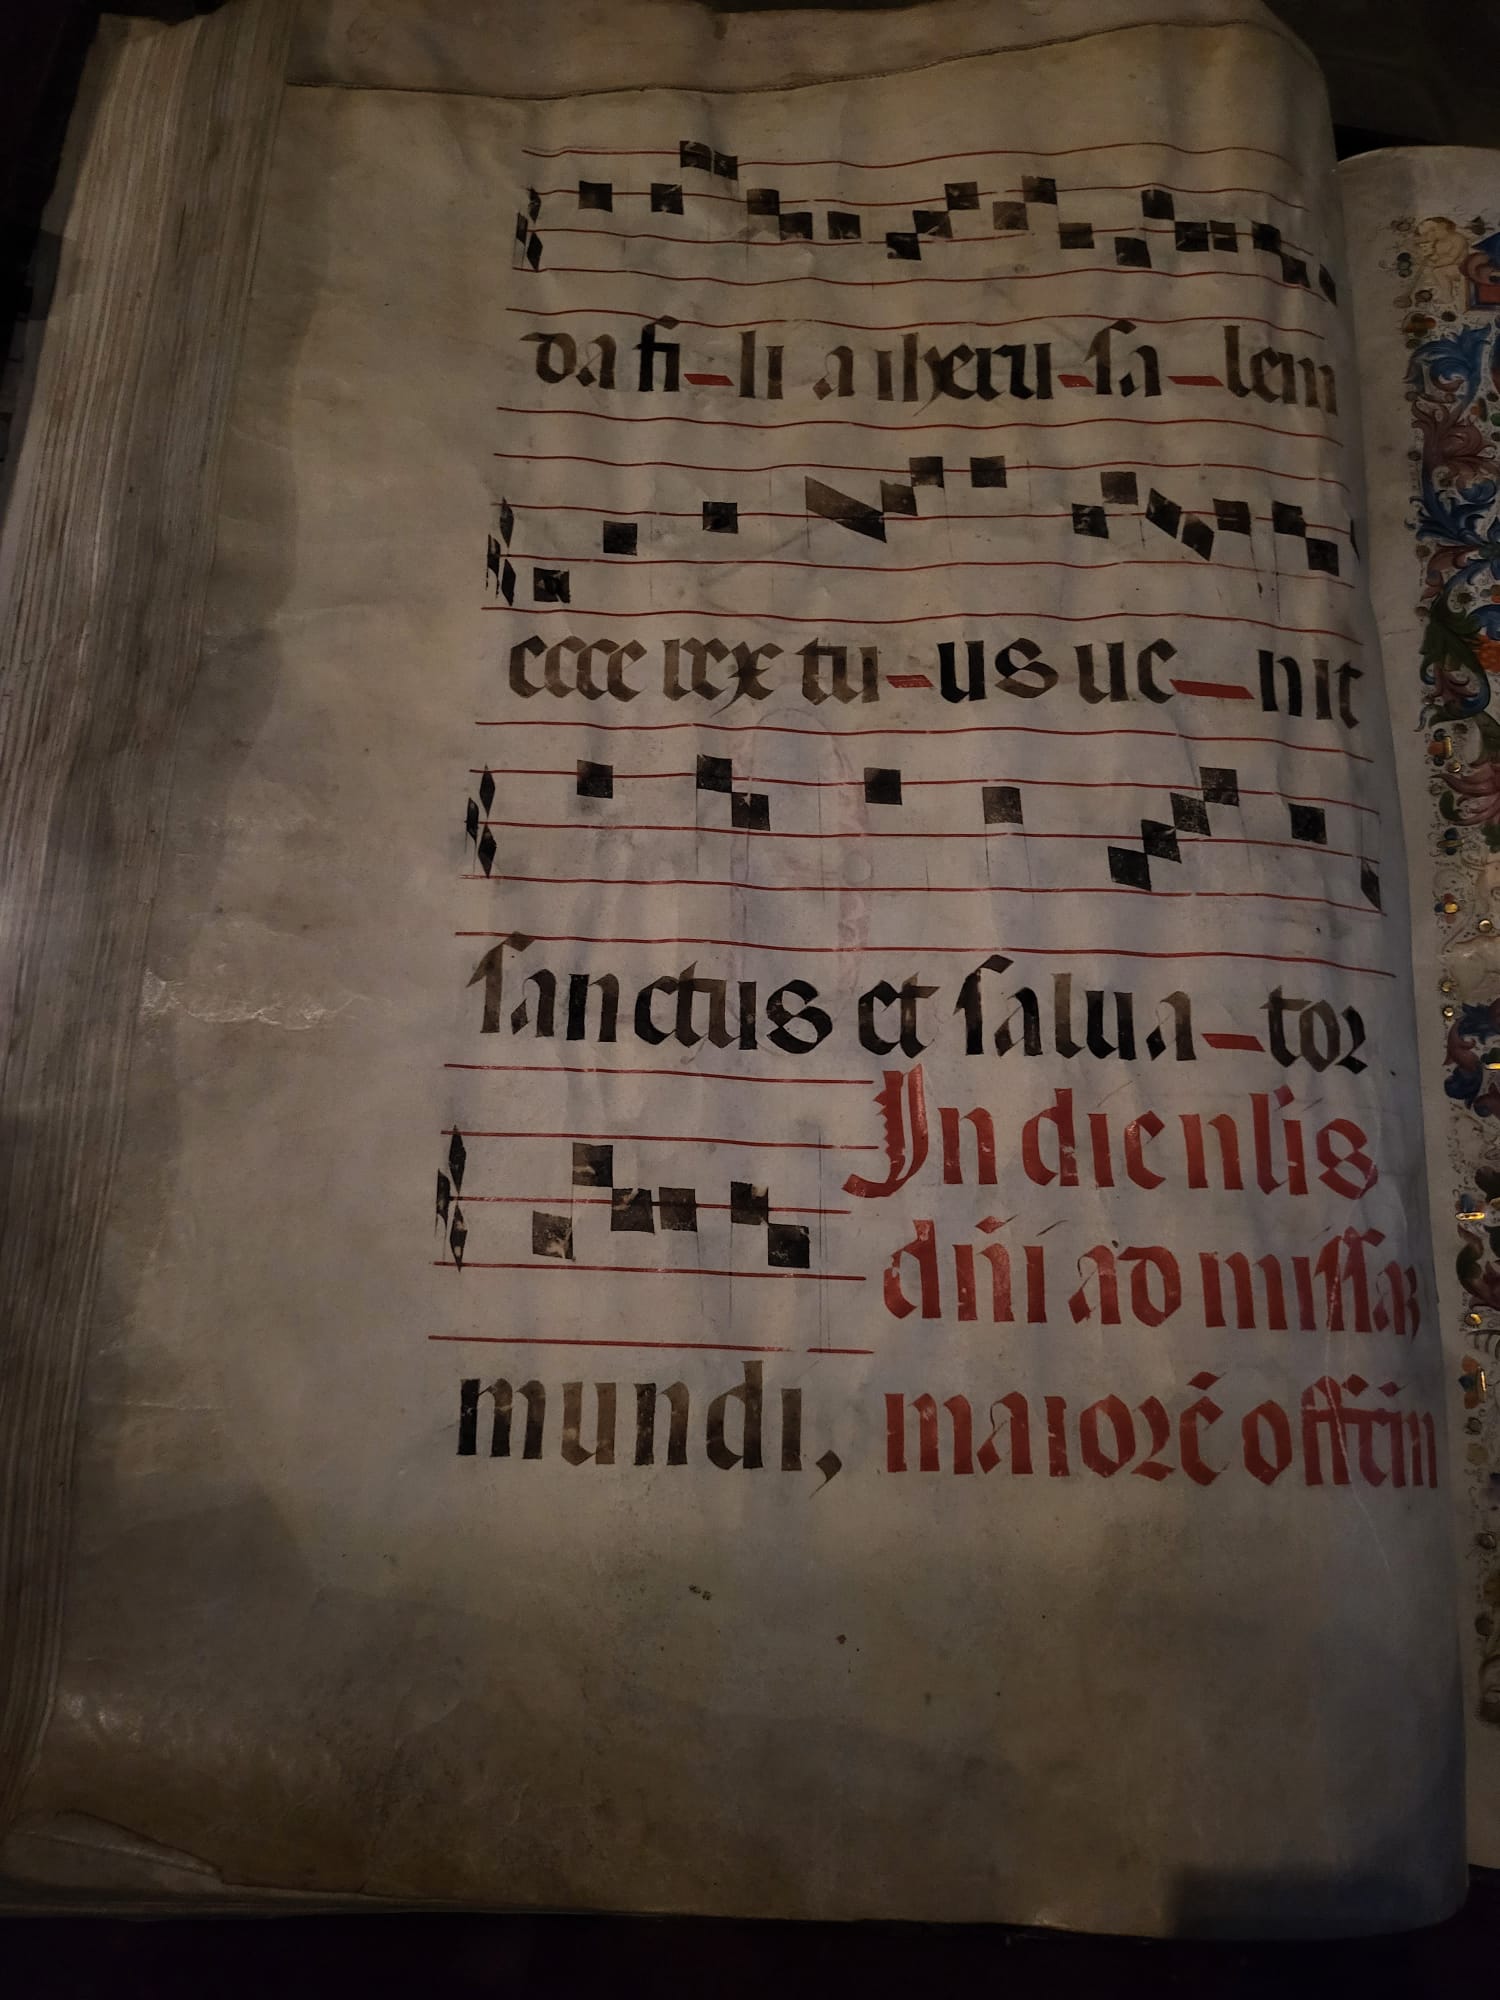 da fi-li a iheru-sa-lem
ecce rex tu-us ue-nit
sanctus et salua-tor
In die nlis
dñi ad missaꝫ
mundi, maiorē offitiū